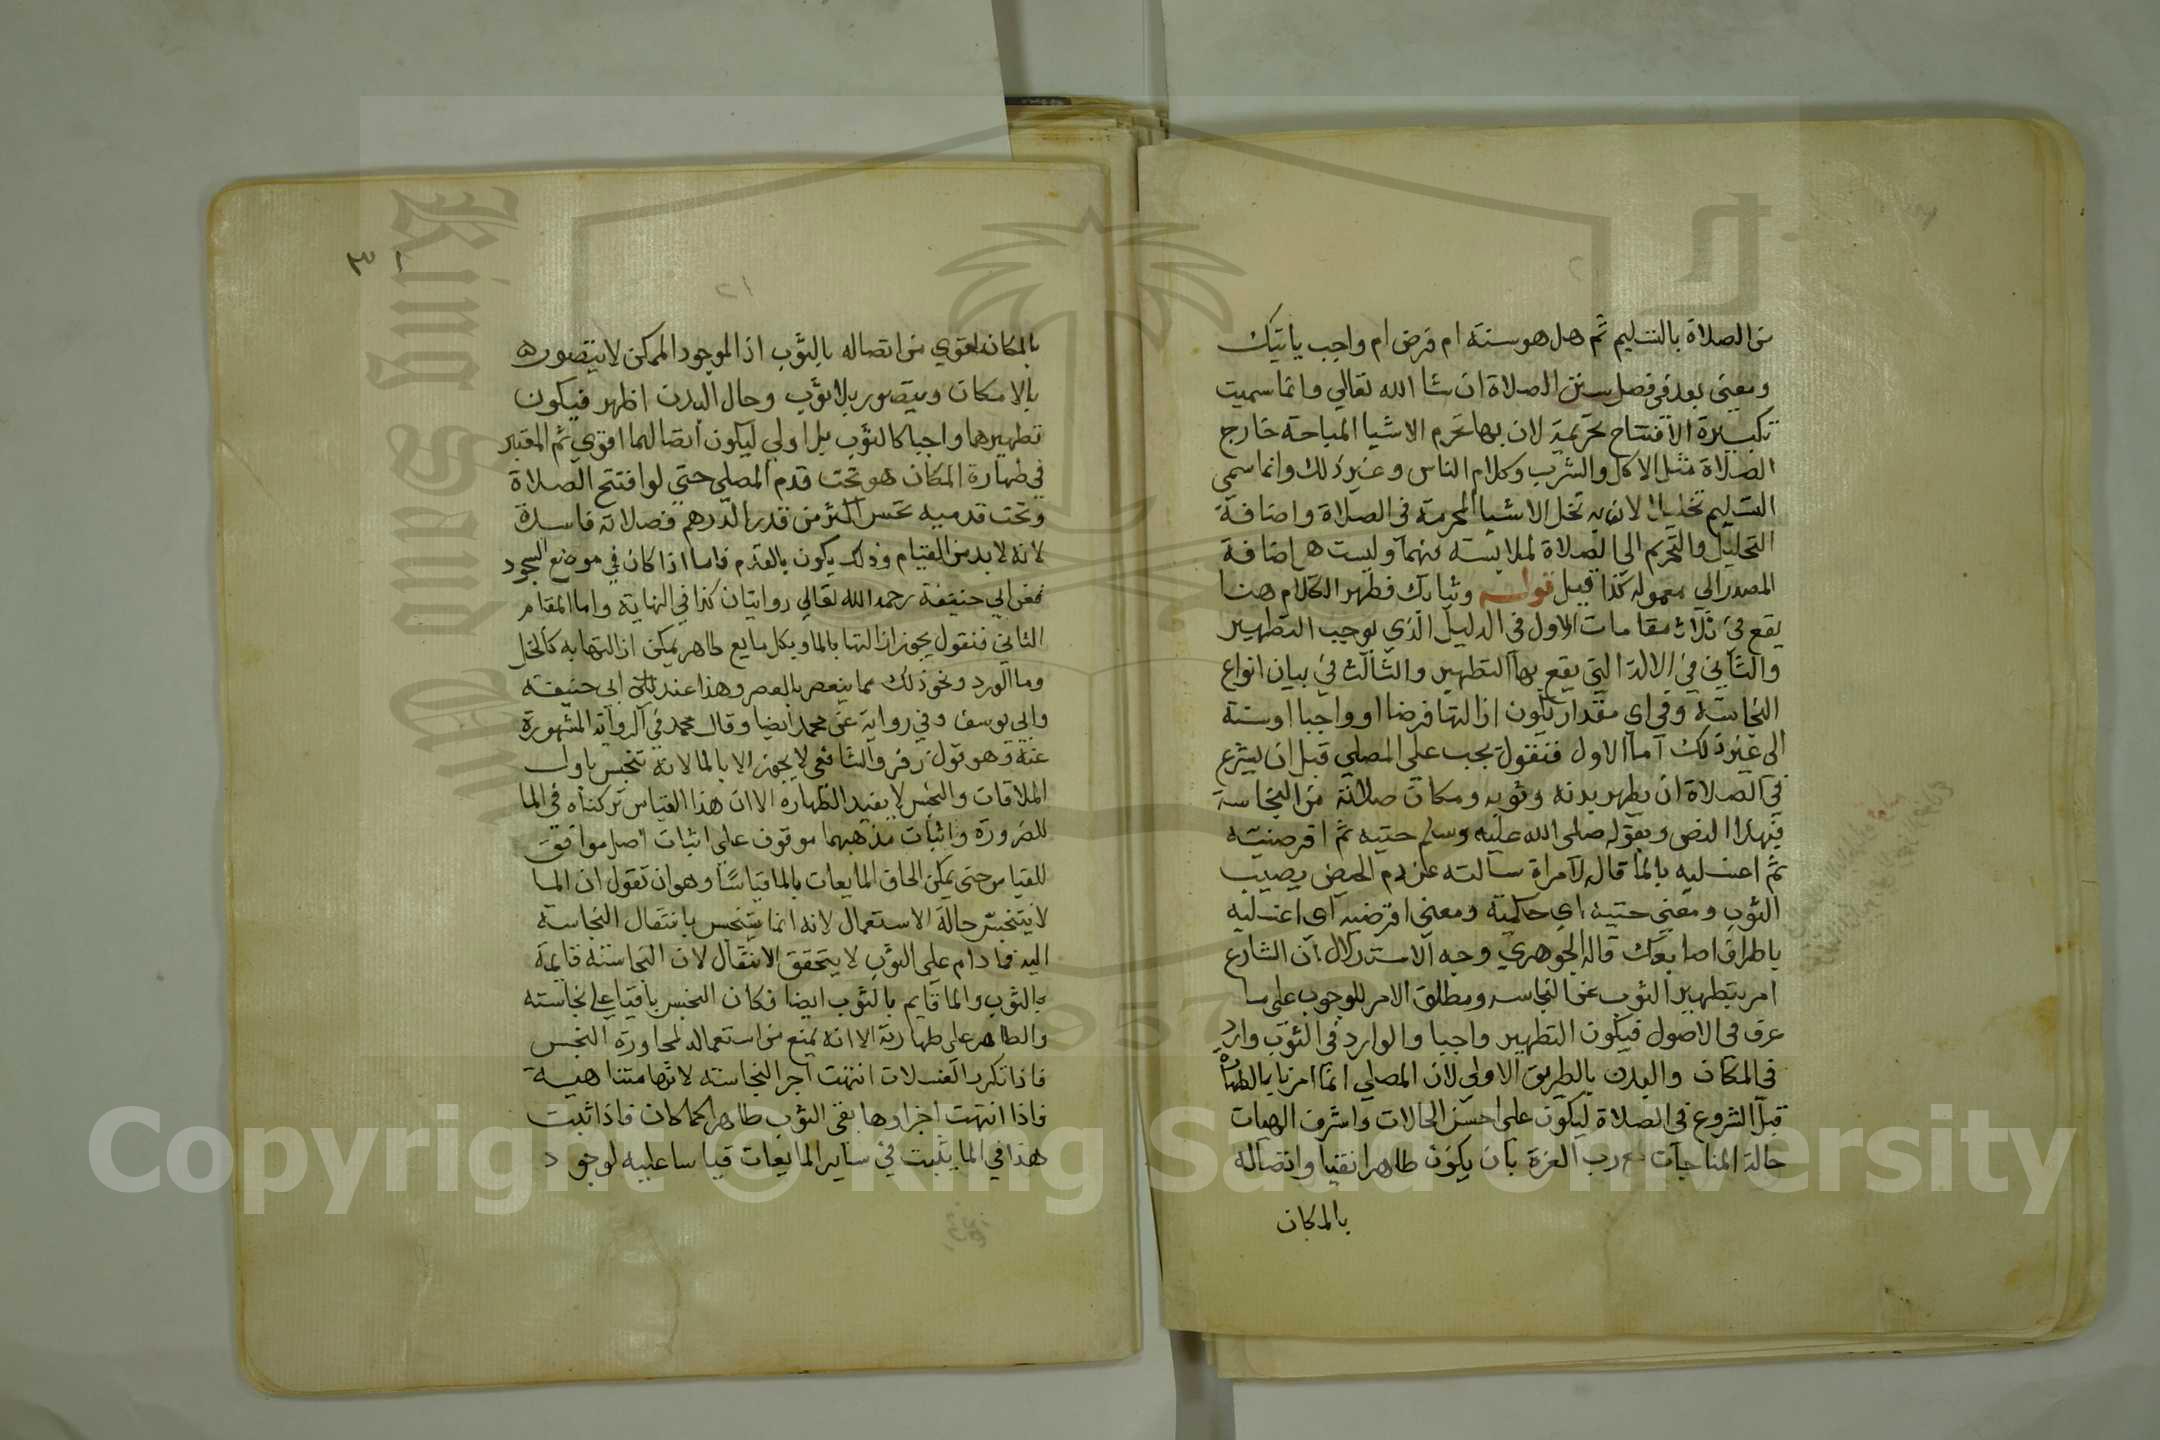 من الصلاة بالتسليم ثم هل هو سنة ام فرض ام واجب ياتيك
ومعنى بعد في فصل سنن الصلاة ان شا الله تعالي وانما سميت
تكبيرة الافتتاح تحريمة لان بها تحرم الاشيا المباحة خارج
الصلاة مثل الاكل والشرب وكلام الناس وغير ذلك وانما سمي
التسليم تحليلا لان به تحل الاشيا المحرمة في الصلاة واضافة
التحليل والتحريم الي الصلاة لملابسة منهما وليست هي اضافة
المصدر الي معموله كذا قيل قوله وثيابك فطهر الكلام هنا
يقع في ثلاث مقامات الاول في الدليل الذي يوجب التطهير
والثاني في الالة التي يقع بها التطهير والثالث في بيان انواع
النجاسة وفي اي مقدار يكون ازالتها فرضا او واجبا او سنة
الي غير ذلك اما الاول فنقول يجب علي المصلي قبل ان يشرع
في الصلاة ان يطهر بدنه وثوبه ومكان صلاته من النجاسة
فبهذا النص وبقوله صلي الله عليه وسلم حتيه ثم اقرصيه
ثم اغسليه بالما قاله لامراة سالته عن دم الحيض يصيب
الثوب ومعني حتيه اي حكيه ومعني اقرصيه اي اغسليه
باطراف اصابعك قاله الجوهري وجه الاستدلال ان الشارع
امر بتطهير الثوب عن النجاسه ومطلق الامر للوجوب علي ما
عرف في الاصول فيكون التطهير واجبا والوارد في الثوب وارد
في المكان والبدن بالطريق الاولي لان المصلي انما امرنا بالطهارة
قبل الشروع في الصلاة ليكون علي احسن الحالات واشرف الهيات
حالة المناجات مع رب العزة بان يكون طاهرا نقيا واتصاله
بالمكان
٣١
٢١
بالمكان اقوي من اتصاله بالثوب اذ الموجود الممكن لا يتصوره
بلا مكان ويتصور بلا ثوب وحال البدن اظهر فيكون
تطهيرهما واجبا كالثوب بل اولي ليكون اتصالهما اقوي ثم المعتبر
في طهارة المكان هو تحت قدم المصلي حتي لو افتتح الصلاة
وتحت قدميه نجس اكثر من قدر الدرهم فصلاته فاسدة
لانه لا بد من القيام وذلك يكون بالقدم فاما اذا كان في موضع السجود
فعن ابي حنيفة رحمه الله تعالي روايتان كذا في النهاية واما المقام
الثاني فنقول يجوز ازالتها بالما وبكل مايع طاهر يمكن ازالتها به كالخل
وما الورد ونحو ذلك مما ينعصر بالعصر وهذا عند ابي حنيفة
وابي يوسف وفي رواية عن محمد ايضا وقال محمد في الرواية المشهورة
عنه وهو قول زفر والشافعي لا يجوز الا بالما لانه تنجس باول
الملاقات والنجس لا يفيد الطهارة الا ان هذا القياس تركناه في الما
للضرورة واثبات مذهبهما موقوف علي اثبات اصل موافق
للقياس حتي يمكن الحاق المايعات بالما قياسًا وهو ان تقول ان الما
لا يتنجس حالة الاستعمال لانه انما يتنجس بانتقال النجاسة
اليه فما دام علي الثوب لا يتحقق الانتقال لان النجاسة قايمة
بالثوب والما قايم بالثوب ايضا فكان النجس باقيا علي نجاسته
والطاهر علي طهارته الا انه يمنع من استعماله لمجاورة النجس
فاذا تكررت الغسلات انتهت اجزا النجاسته لانها متناهية
فاذا انتهت اجزاوها بقي الثوب طاهرا كما كان فاذا ثبت
هذا في الما يثبت في ساير المايعات قياسا عليه لوجود
Copyright © King Saud University
King Saud University
1957